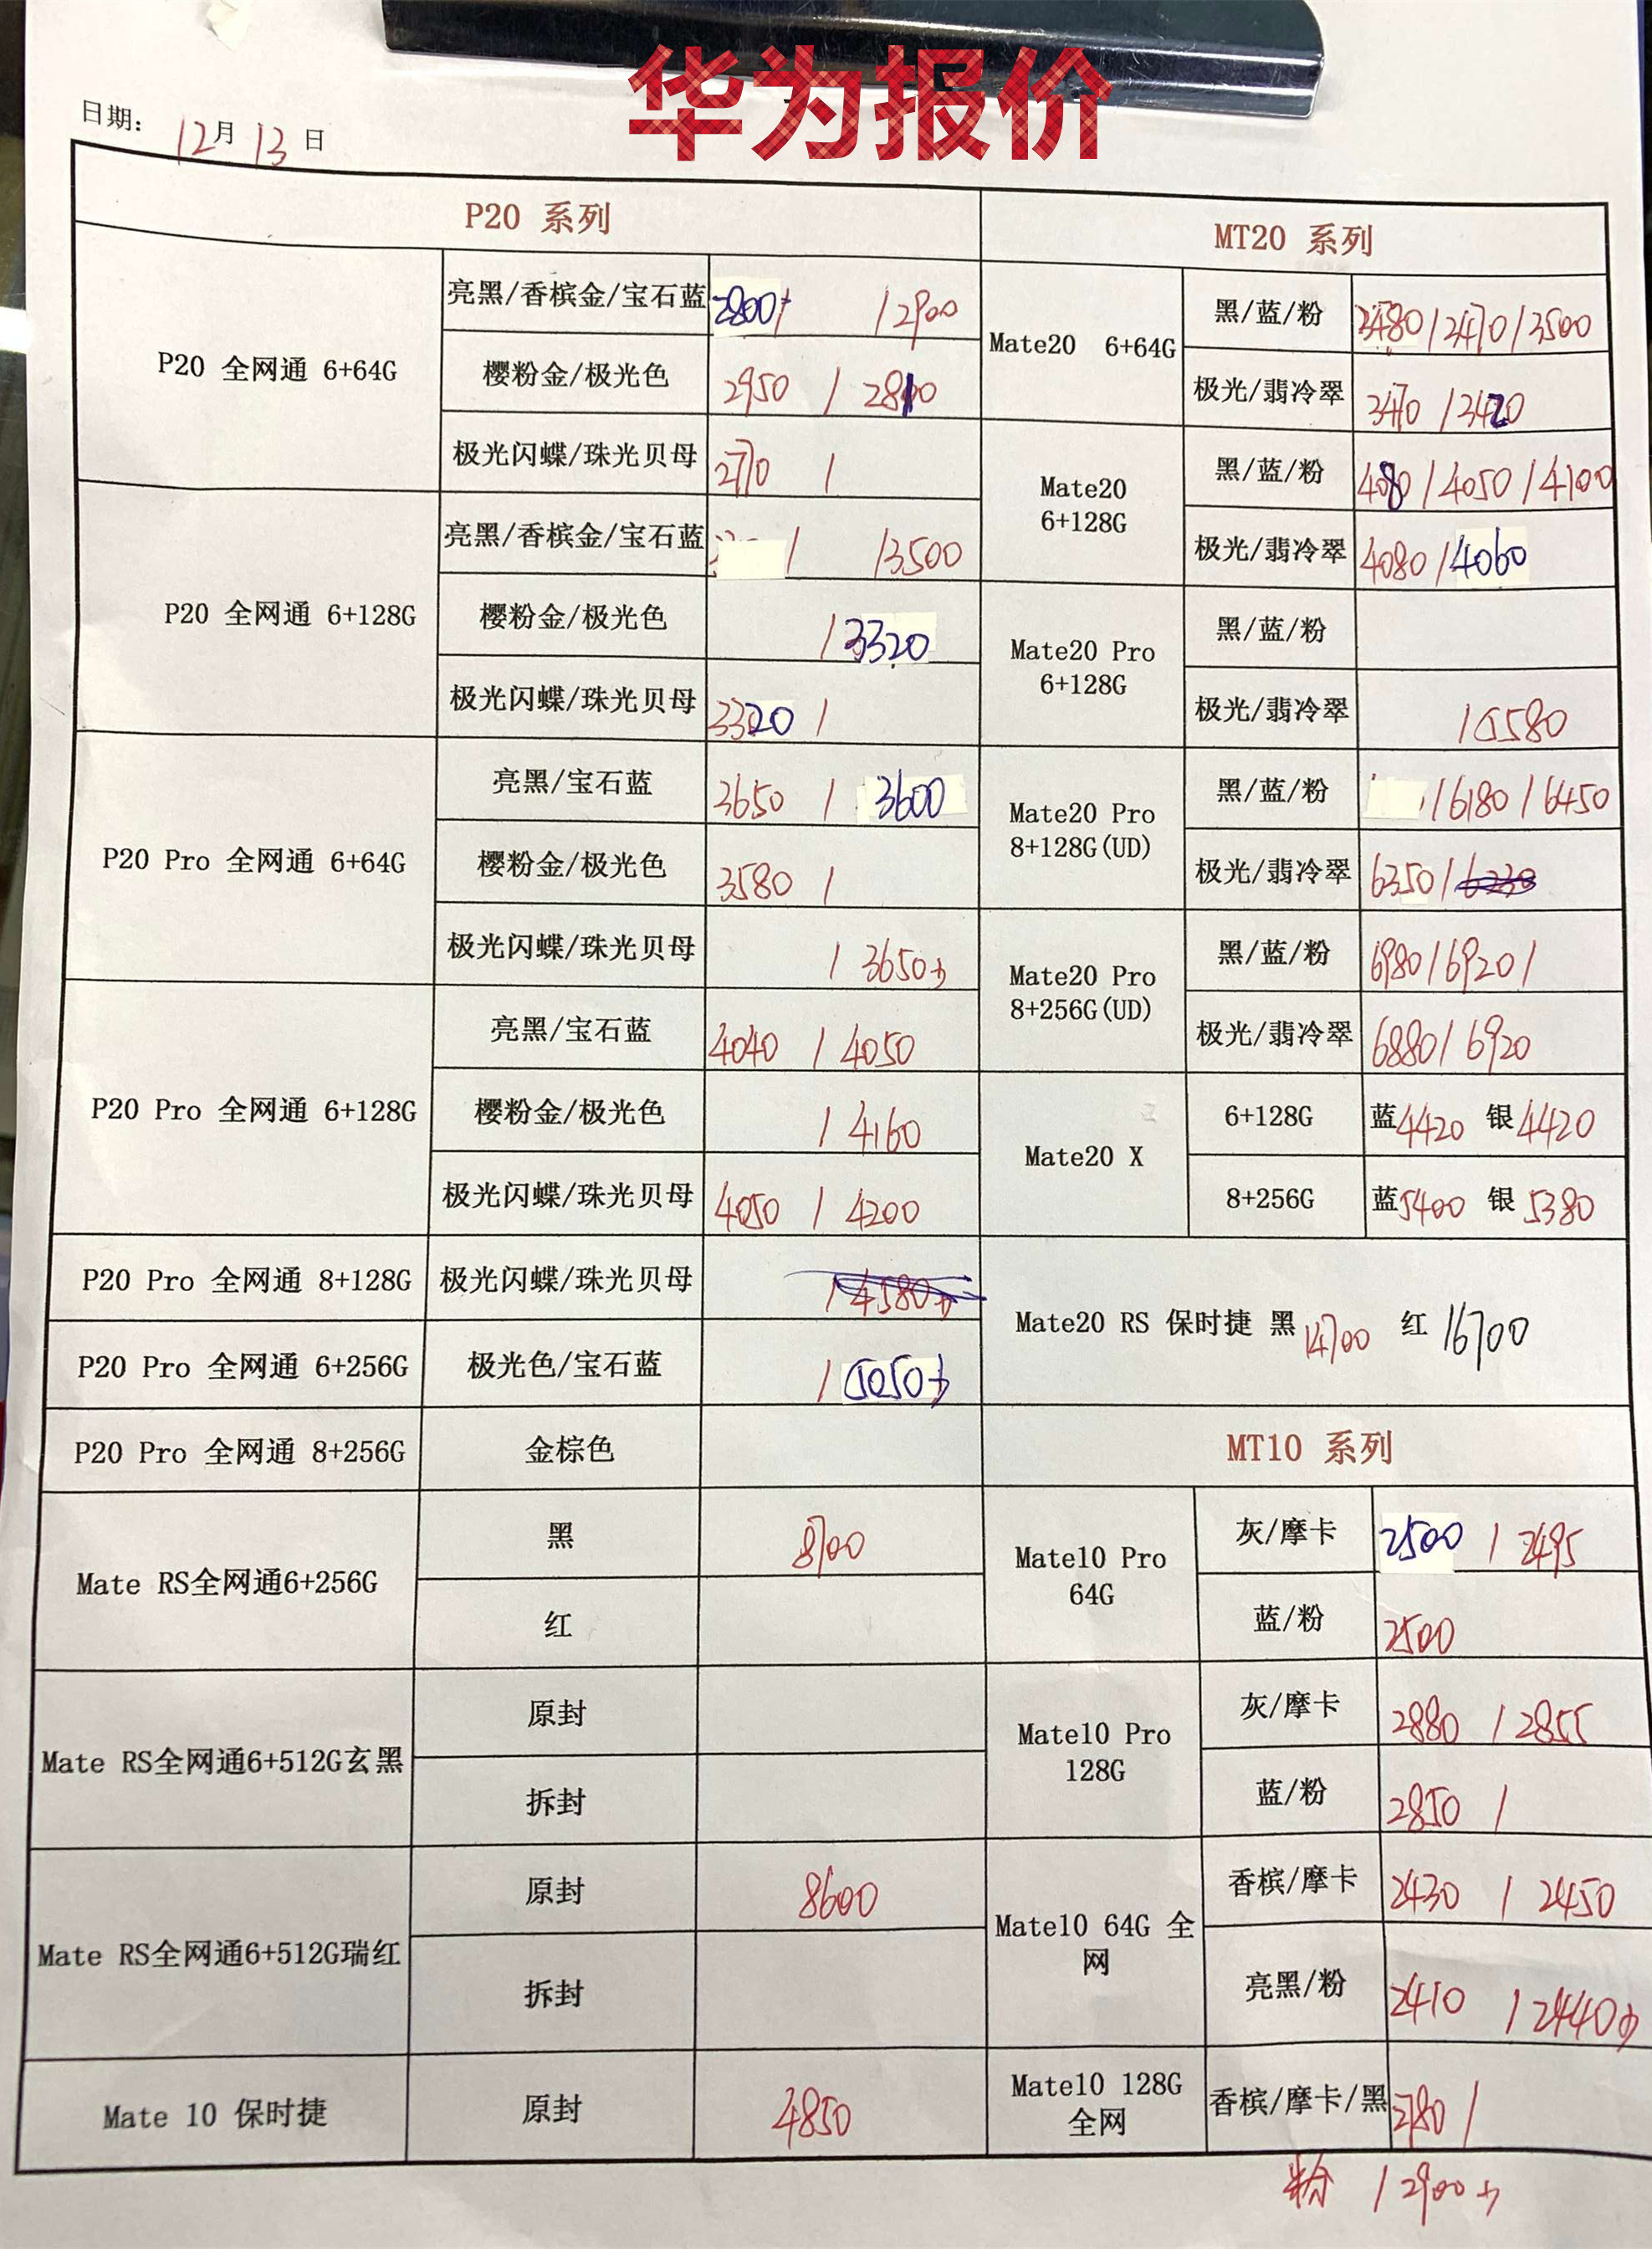 华为报价
日期: 12月13日
P20 系列
P20 全网通 6+64G
亮黑/香槟金/宝石蓝 2800+/ /2900
樱粉金/极光色 2950 / 2810
极光闪蝶/珠光贝母 2770 /
P20 全网通 6+128G
亮黑/香槟金/宝石蓝 / /3500
樱粉金/极光色 /3320
极光闪蝶/珠光贝母 3320 /
P20 Pro 全网通 6+64G
亮黑/宝石蓝 3650 / 3600
樱粉金/极光色 3580 /
极光闪蝶/珠光贝母 / 3650
P20 Pro 全网通 6+128G
亮黑/宝石蓝 4040 / 4050
樱粉金/极光色 / 4160
极光闪蝶/珠光贝母 4050 / 4200
P20 Pro 全网通 8+128G 极光闪蝶/珠光贝母 / 4580
P20 Pro 全网通 6+256G 极光色/宝石蓝 / 5050
P20 Pro 全网通 8+256G 金棕色
Mate RS全网通6+256G
黑 8700
红
Mate RS全网通6+512G玄黑
原封
拆封
Mate RS全网通6+512G瑞红
原封 8600
拆封
Mate 10 保时捷 原封 4850
MT20 系列
Mate20 6+64G
黑/蓝/粉 3480/3470/3500
极光/翡冷翠 3470/3420
Mate20
6+128G
黑/蓝/粉 4080/4050/4100
极光/翡冷翠 4080/4060
Mate20 Pro
6+128G
黑/蓝/粉
极光/翡冷翠 /5580
Mate20 Pro
8+128G(UD)
黑/蓝/粉 /6180/6450
极光/翡冷翠 6350/6230
Mate20 Pro
8+256G(UD)
黑/蓝/粉 6980/6920/
极光/翡冷翠 6880/6920
Mate20 X
6+128G 蓝4420 银4420
8+256G 蓝5400 银5380
Mate20 RS 保时捷 黑14700 红16700
MT10 系列
Mate10 Pro
64G
灰/摩卡 2500 / 2495
蓝/粉 2500
Mate10 Pro
128G
灰/摩卡 2880 / 2855
蓝/粉 2850 /
Mate10 64G 全
网
香槟/摩卡 2430 / 2450
亮黑/粉 2410 / 2440
Mate10 128G
全网
香槟/摩卡/黑 2780 /
粉 / 2900